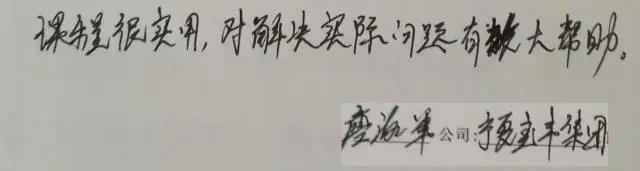 课程很实用,对解决实际问题有很大帮助。
公司:宁夏宝丰集团